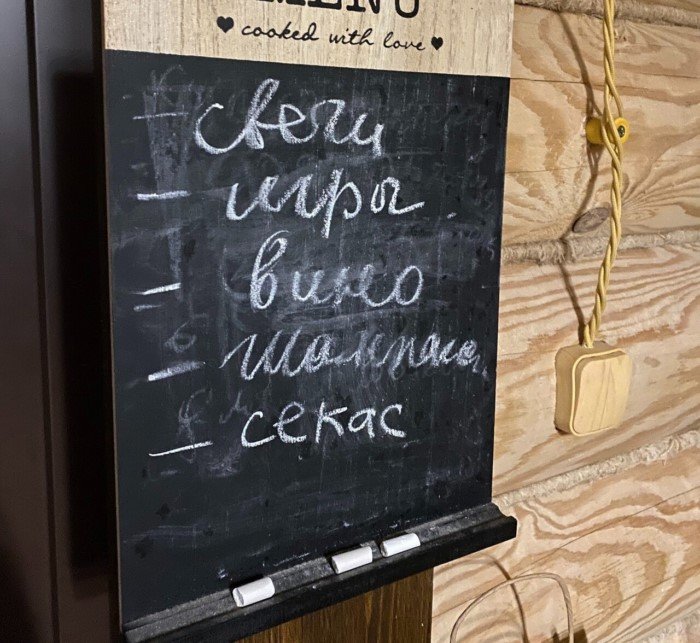 MENU
♥ cooked with love ♥
- свечи
- игры
- вино
- шампанск
- секас